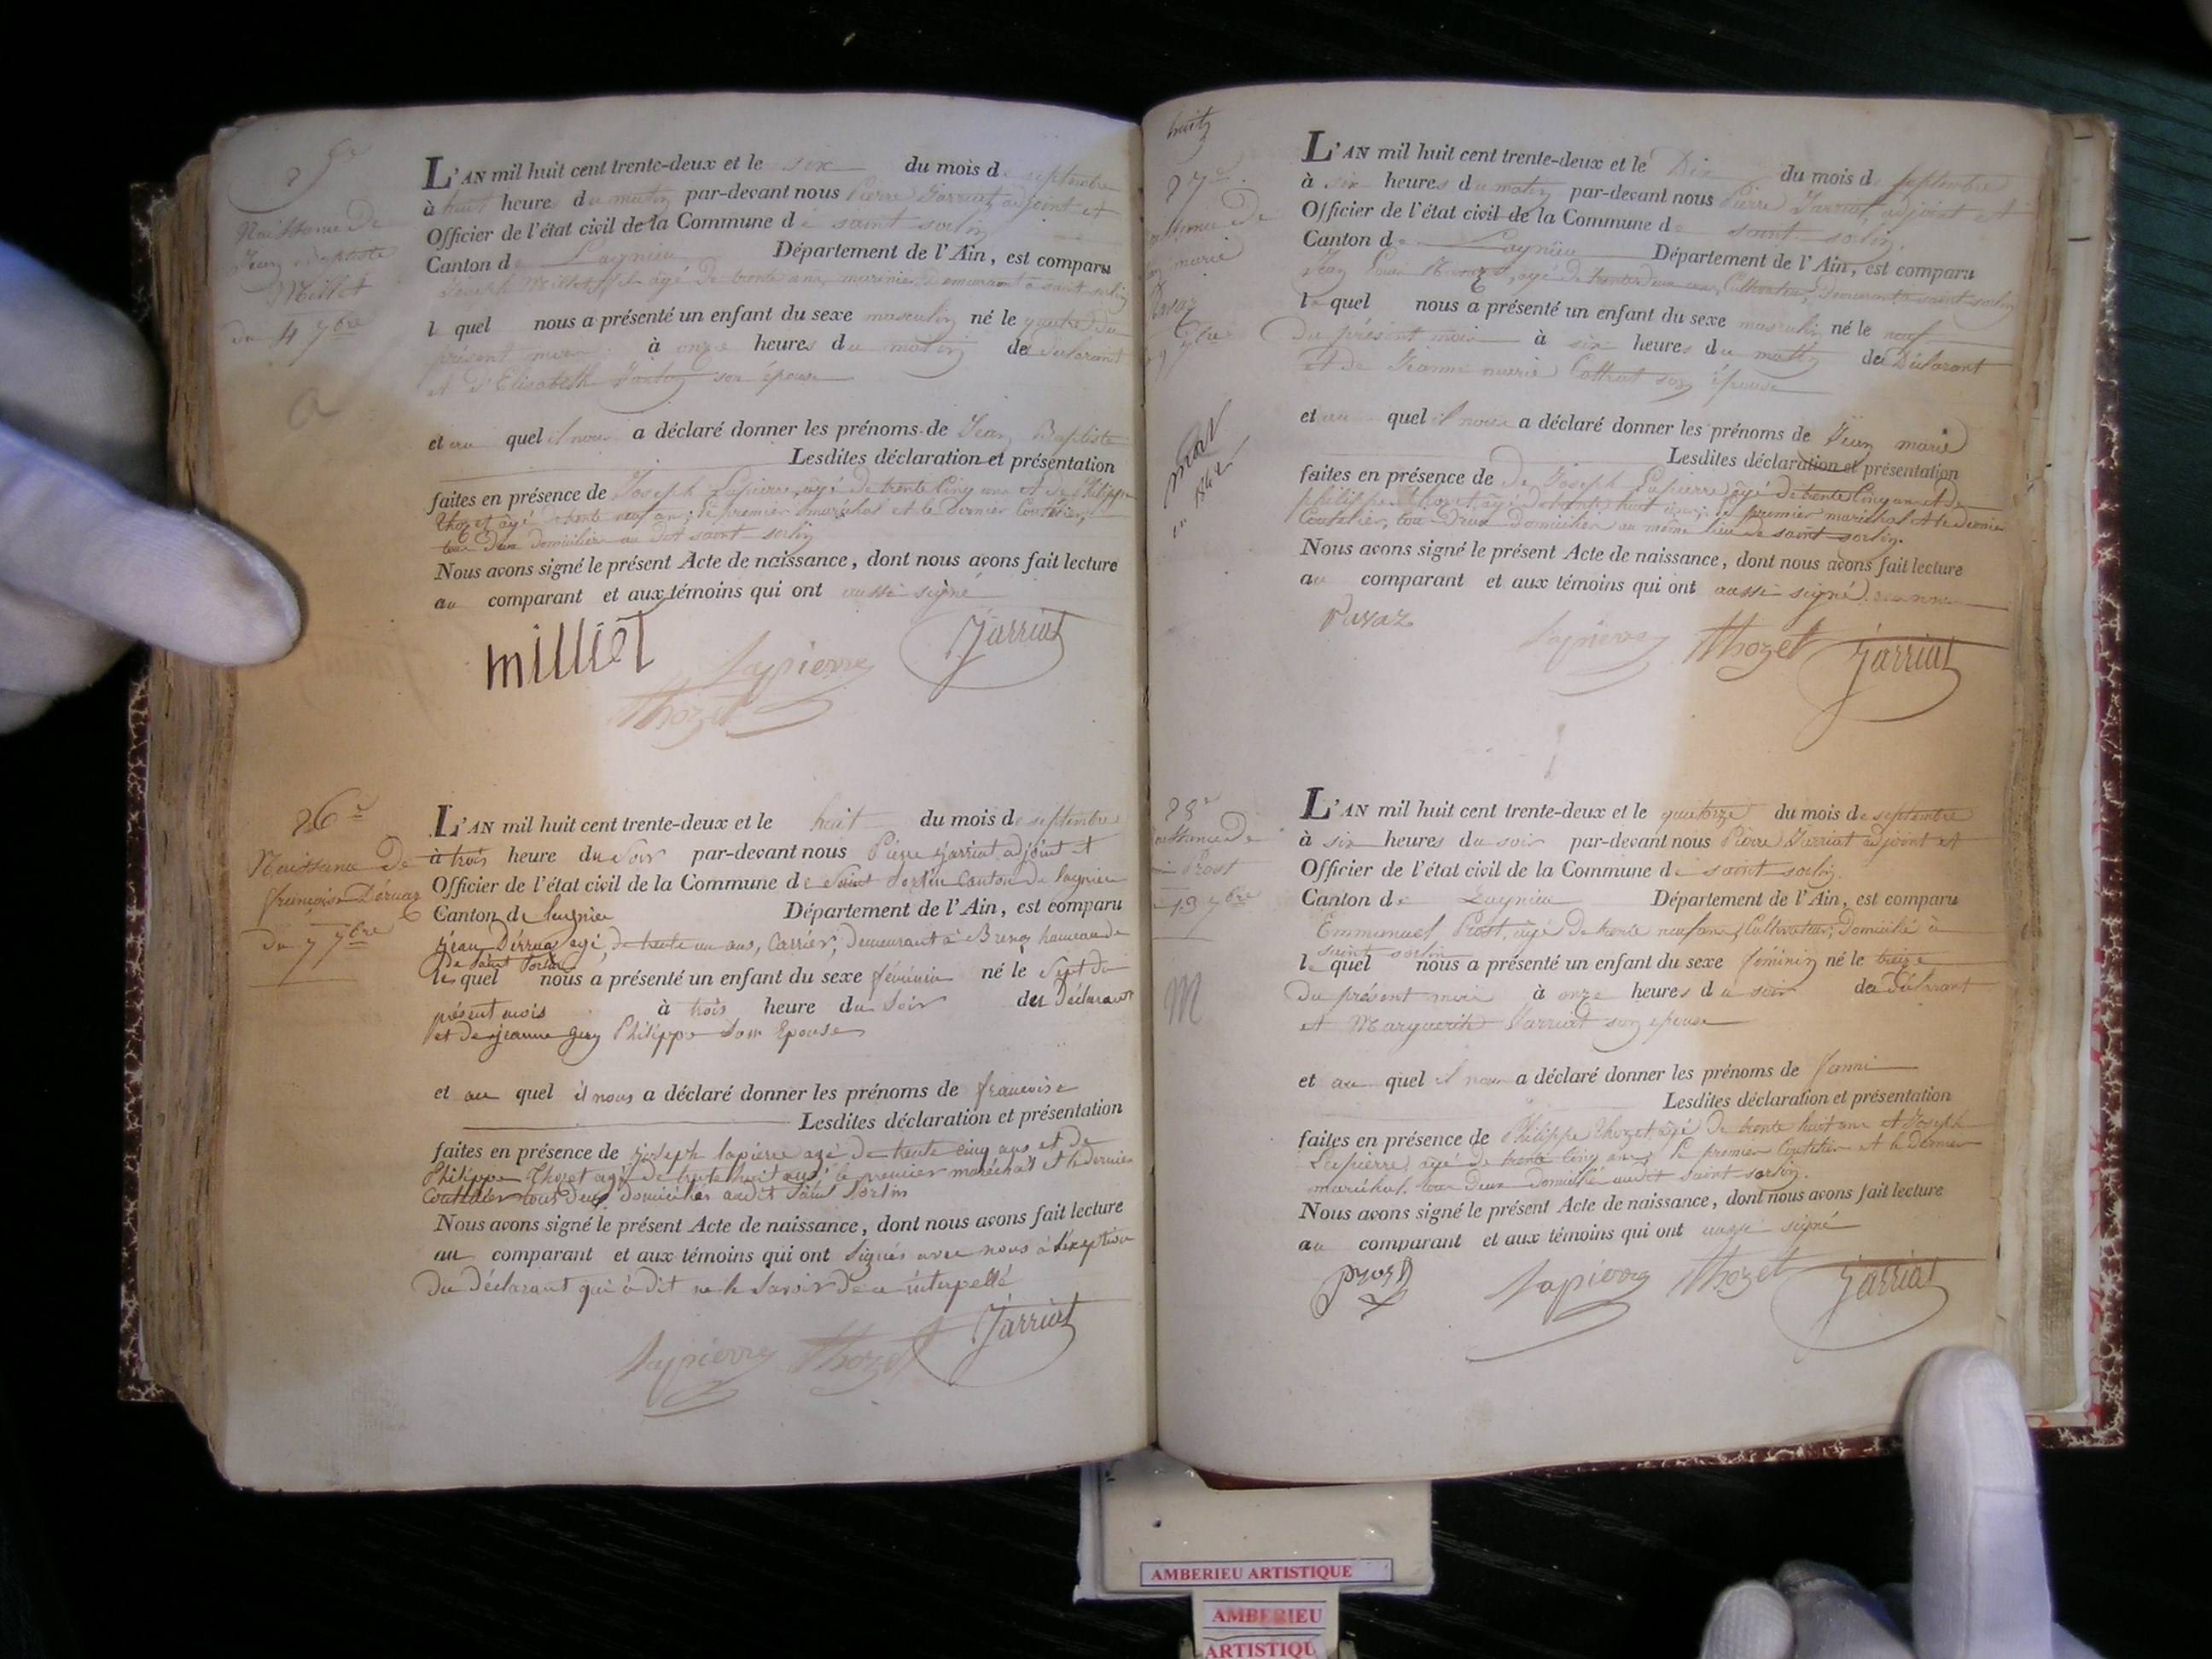 Naissance De
Jean Baptiste
Millet
du 4 7bre
L'AN mil huit cent trente-deux et le six du mois de septembre
à huit heures du matin par-devant nous Pierre Jarriat adjoint et
Officier de l'état civil de la Commune de saint sorlin
Canton de Lagnieu Département de l'Ain, est comparu
Joseph âgé de trente ans, marinier demeurant à saint sorlin
lequel nous a présenté un enfant du sexe masculin né le quatre du
présent mois à onze heures du matin de déclarant
et d'Elisabeth son épouse
et au quel il nous a déclaré donner les prénoms de Jean Baptiste
Lesdites déclaration et présentation
faites en présence de Joseph Lapierre, âgé de trente cinq ans et de Philippe
Thozet âgé de trente neuf ans; le premier maréchal et le dernier Coutelier,
tous deux domiciliés au dit saint-sorlin
Nous avons signé le présent Acte de naissance, dont nous avons fait lecture
au comparant et aux témoins qui ont aussi signé
milliet Lapierre Jarriat
Thozet
26e
Naissance De
françoise Déruaz
du 7 7bre
L'AN mil huit cent trente-deux et le huit du mois de septembre
à trois heure du soir par-devant nous Pierre Jarriat adjoint et
Officier de l'état civil de la Commune de Saint Sorlin Canton de lagnieu
Canton de lagnieu Département de l'Ain, est comparu
jean Dérruaz agé de trente un ans, Carrier, Demeurant à hameau de
de Saint Sorlin
lequel nous a présenté un enfant du sexe féminin né le Sept du
présent mois à trois heure du Soir des Déclarant
et de jeanne Philippe Son Epouse
et au quel il nous a déclaré donner les prénoms de françoise
Lesdites déclaration et présentation
faites en présence de joseph lapierre agé de trente cinq ans et de
Philippe Thozet agé de trente huit ans le premier maréchal et le dernier
Coutellier tous deux domiciliés audit Saint Sorlin
Nous avons signé le présent Acte de naissance, dont nous avons fait lecture
au comparant et aux témoins qui ont Signés avec nous à l'exeption
du déclarant qui à dit ne le Savoir de ce interpellé
Lapierre Thozet Jarriat
huit
27e
De
marie
Ravaz
9 7bre
L'AN mil huit cent trente-deux et le Dix du mois de septembre
à six heures du matin par-devant nous Pierre Jarriat, adjoint et
Officier de l'état civil de la Commune de saint-sorlin.
Canton de Lagnieu Département de l'Ain, est comparu
Jean Louis Ravaz, âgé de trente deux ans, Cultivateur, demeurant à saint-sorlin
lequel nous a présenté un enfant du sexe masculin né le neuf
du présent mois à six heures du matin de Déclarant
et de Jeanne marie son épouse
et au quel il nous a déclaré donner les prénoms de Jean marie
Lesdites déclaration et présentation
faites en présence de de Joseph Lapierre âgé de trente cinq ans et de
philippe Thozet, âgé de trente huit ans; le premier maréchal et le dernier
Coutelier, tous deux domiciliés au même lieu de saint-sorlin.
Nous avons signé le présent Acte de naissance, dont nous avons fait lecture
au comparant et aux témoins qui ont aussi signé
Ravaz Lapierre Thozet Jarriat
28e
De
Prost
13 7bre
M
L'AN mil huit cent trente-deux et le quatorze du mois de septembre
à six heures du soir par-devant nous Pierre Jarriat adjoint et
Officier de l'état civil de la Commune de saint sorlin.
Canton de Lagnieu Département de l'Ain, est comparu
Emmanuel Prost, âgé de trente neuf ans, Cultivateur, Domicilié à
saint sorlin
lequel nous a présenté un enfant du sexe féminin né le treize
du présent mois à onze heures du soir de Déclarant
et Marguerite Jarriat son épouse
et au quel il nous a déclaré donner les prénoms de fanni
Lesdites déclaration et présentation
faites en présence de Philippe Thozet, âgé de trente huit ans et Joseph
Lapierre, âgé de trente cinq ans; le premier Coutelier et le Dernier
maréchal. tous deux domiciliés audit saint-sorlin.
Nous avons signé le présent Acte de naissance, dont nous avons fait lecture
au comparant et aux témoins qui ont aussi signé
Prost Lapierre Thozet Jarriat
AMBERIEU ARTISTIQUE
AMBERIEU
ARTISTIQU